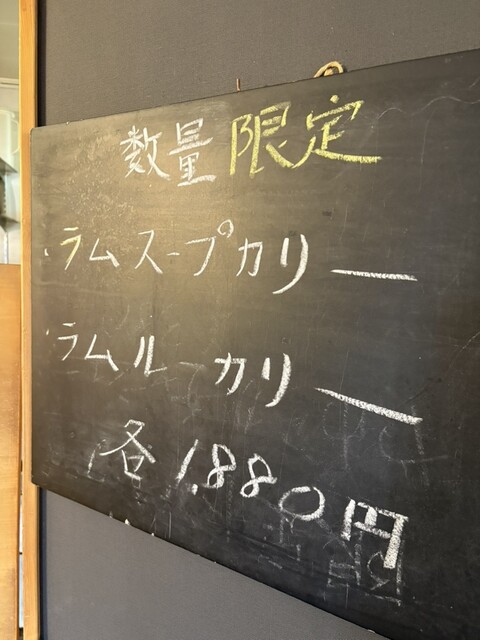 数量限定
・ラムスープカリー
・ラムルーカリー
各1,880円